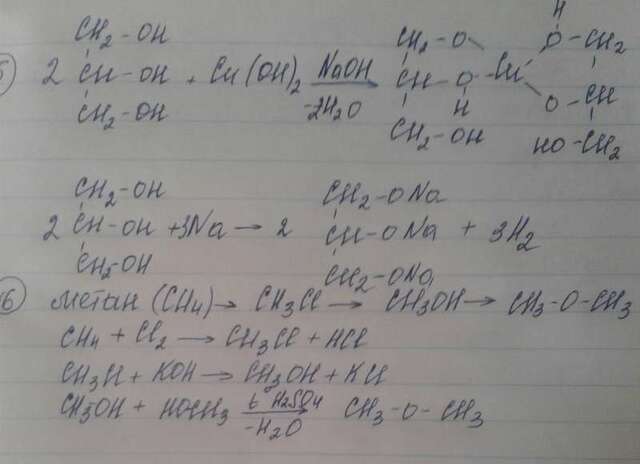 5) 2 CH2-OH CH-OH CH2-OH + Cu(OH)2 NaOH -2H2O → CH2-O CH-O H CH2-OH Cu H O-CH2 O-CH HO-CH2
2 CH2-OH CH-OH CH2-OH +3Na → 2 CH2-ONa CH-ONa CH2-ONa + 3H2
6) метан (CH4) → CH3Cl → CH3OH → CH3-O-CH3
CH4 + Cl2 → CH3Cl + HCl
CH3Cl + KOH → CH3OH + KCl
CH3OH + HOCH3 t° H2SO4 -H2O → CH3-O-CH3